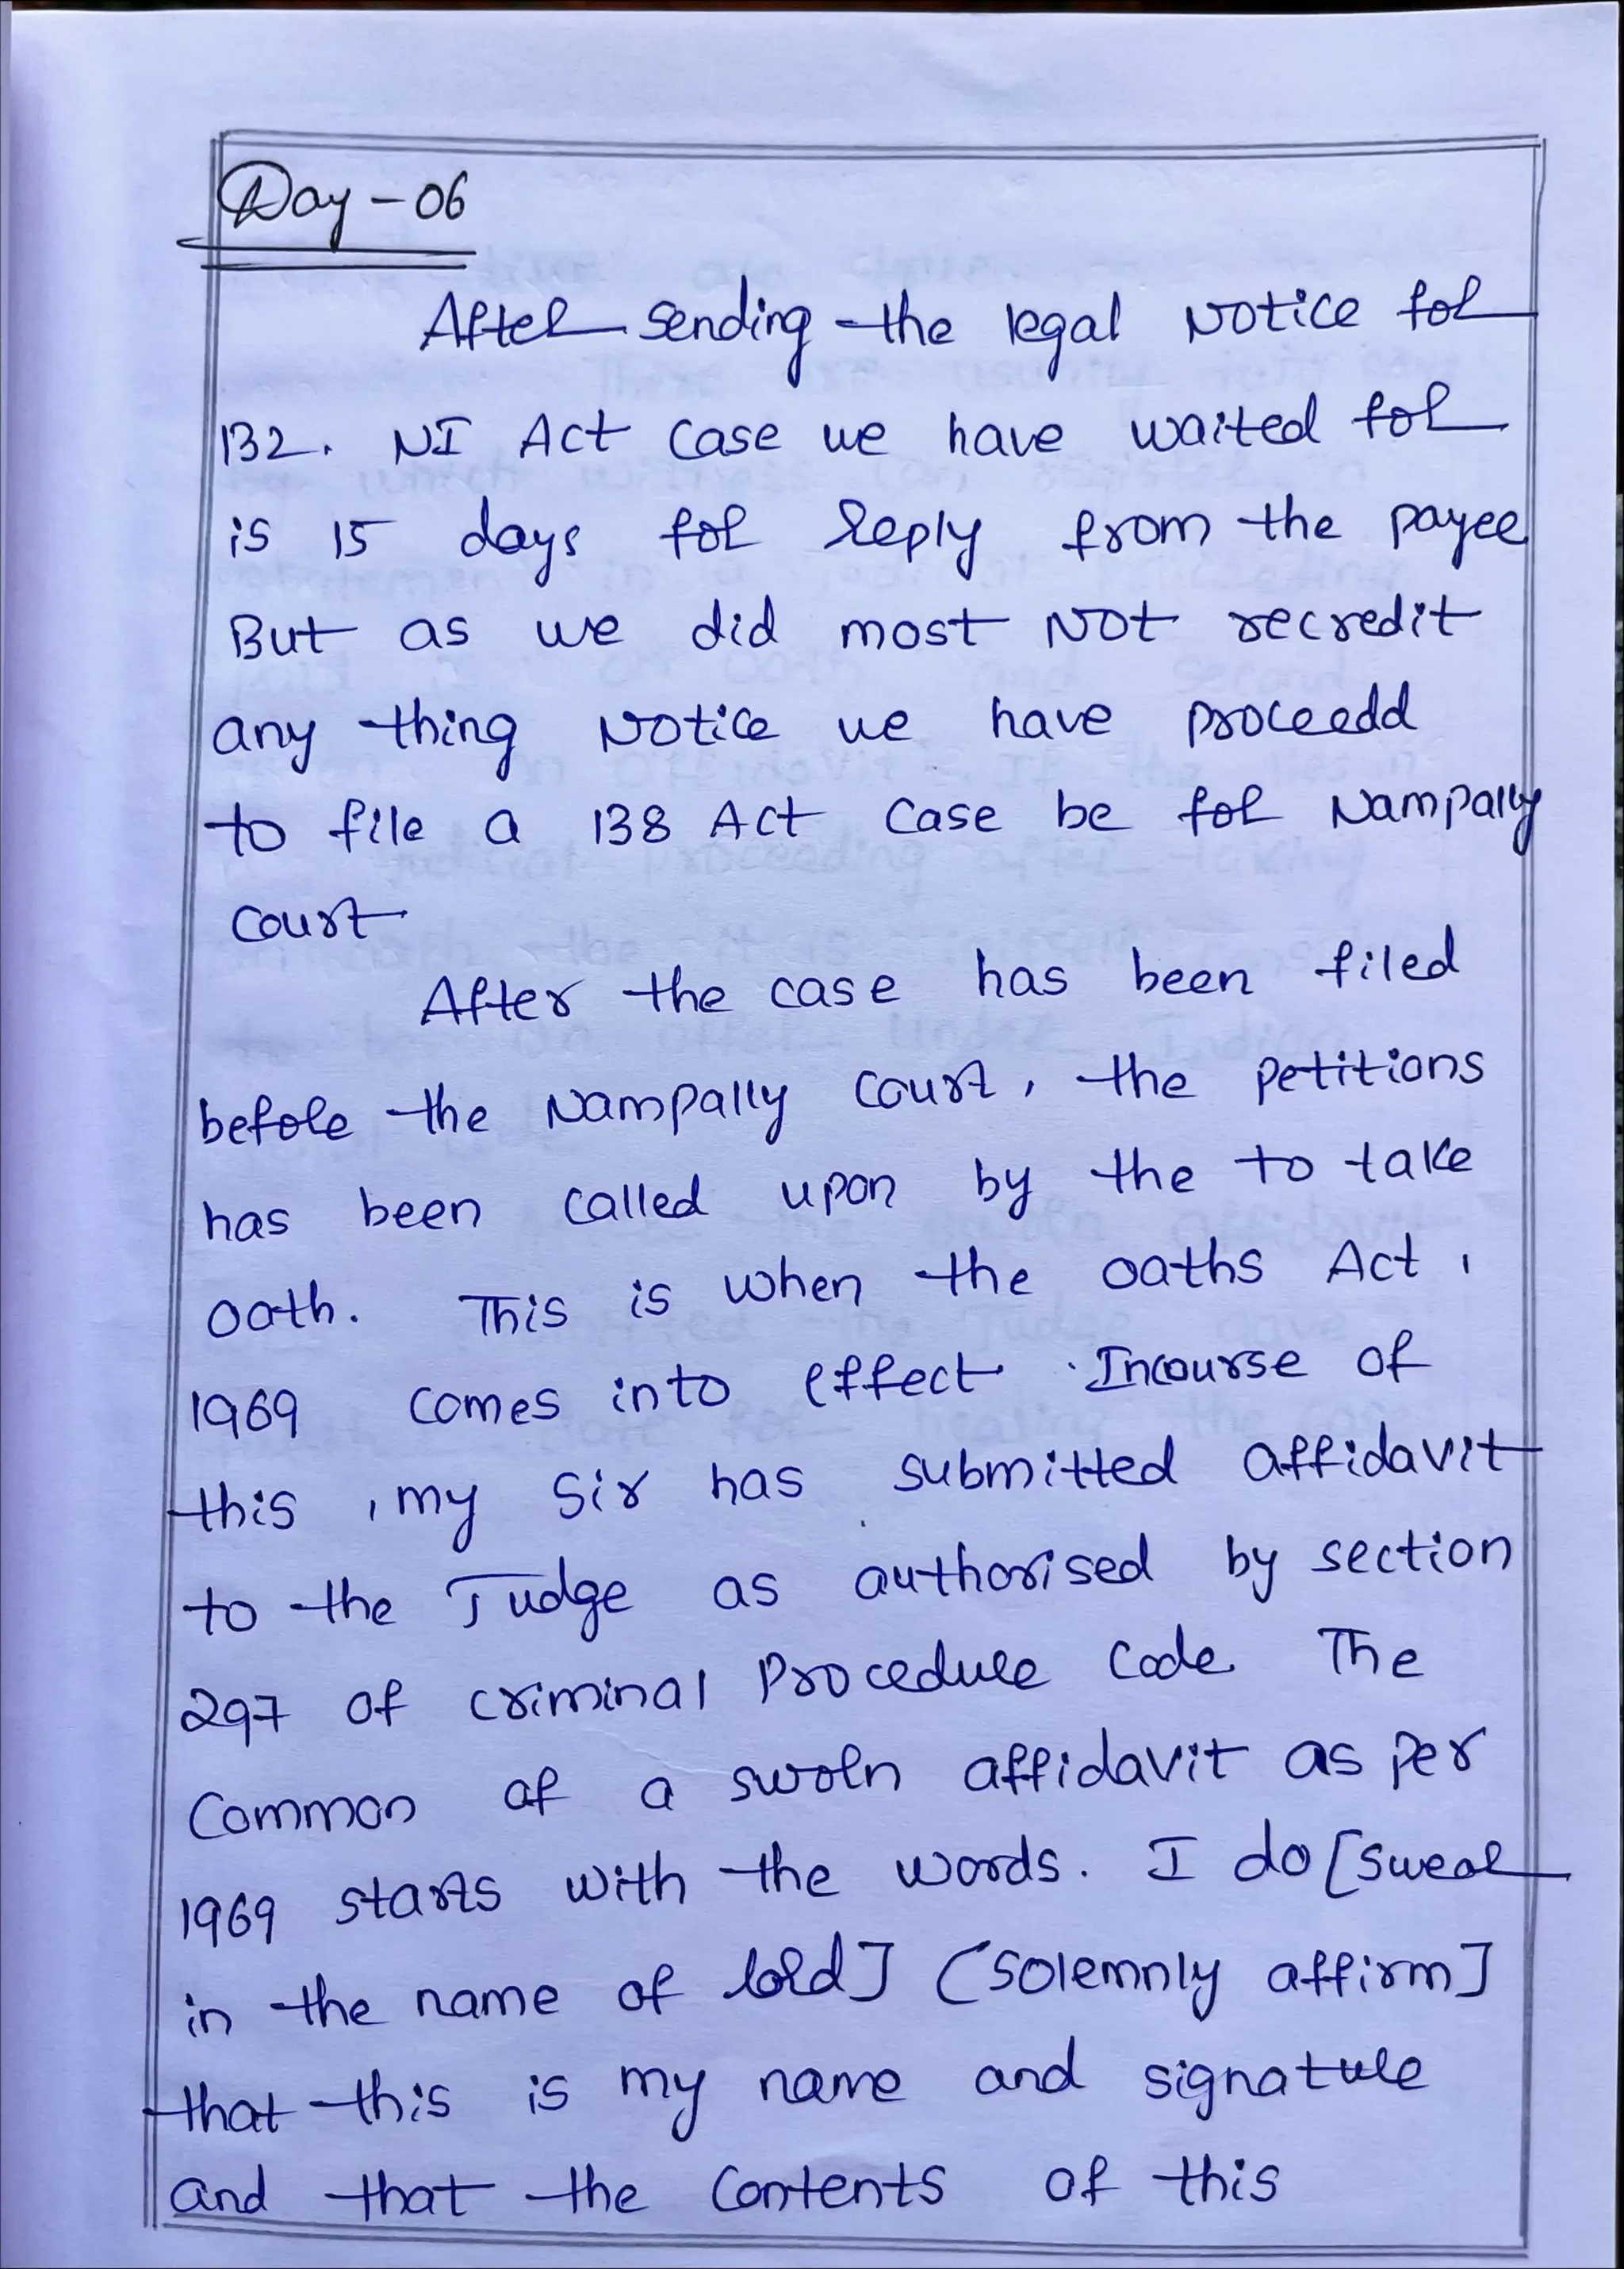 Day - 06
After sending the legal Notice for
132. NI Act case we have waited for
is 15 days for reply from the payee
But as we did most Not recredit
any thing Notice we have proceedd
to file a 138 Act case be for Nampally
court
After the case has been filed
before the Nampally court, the petitions
has been called upon by the to take
oath. This is when the oaths Act,
1969 comes into effect. Incourse of
this, my sir has submitted affidavit
to the Judge as authorised by section
297 of criminal Procedure Code. The
Common of a sworn affidavit as per
1969 starts with the words. I do [swear
in the name of lord] (solemnly affirm]
that this is my name and signature
and that the contents of this